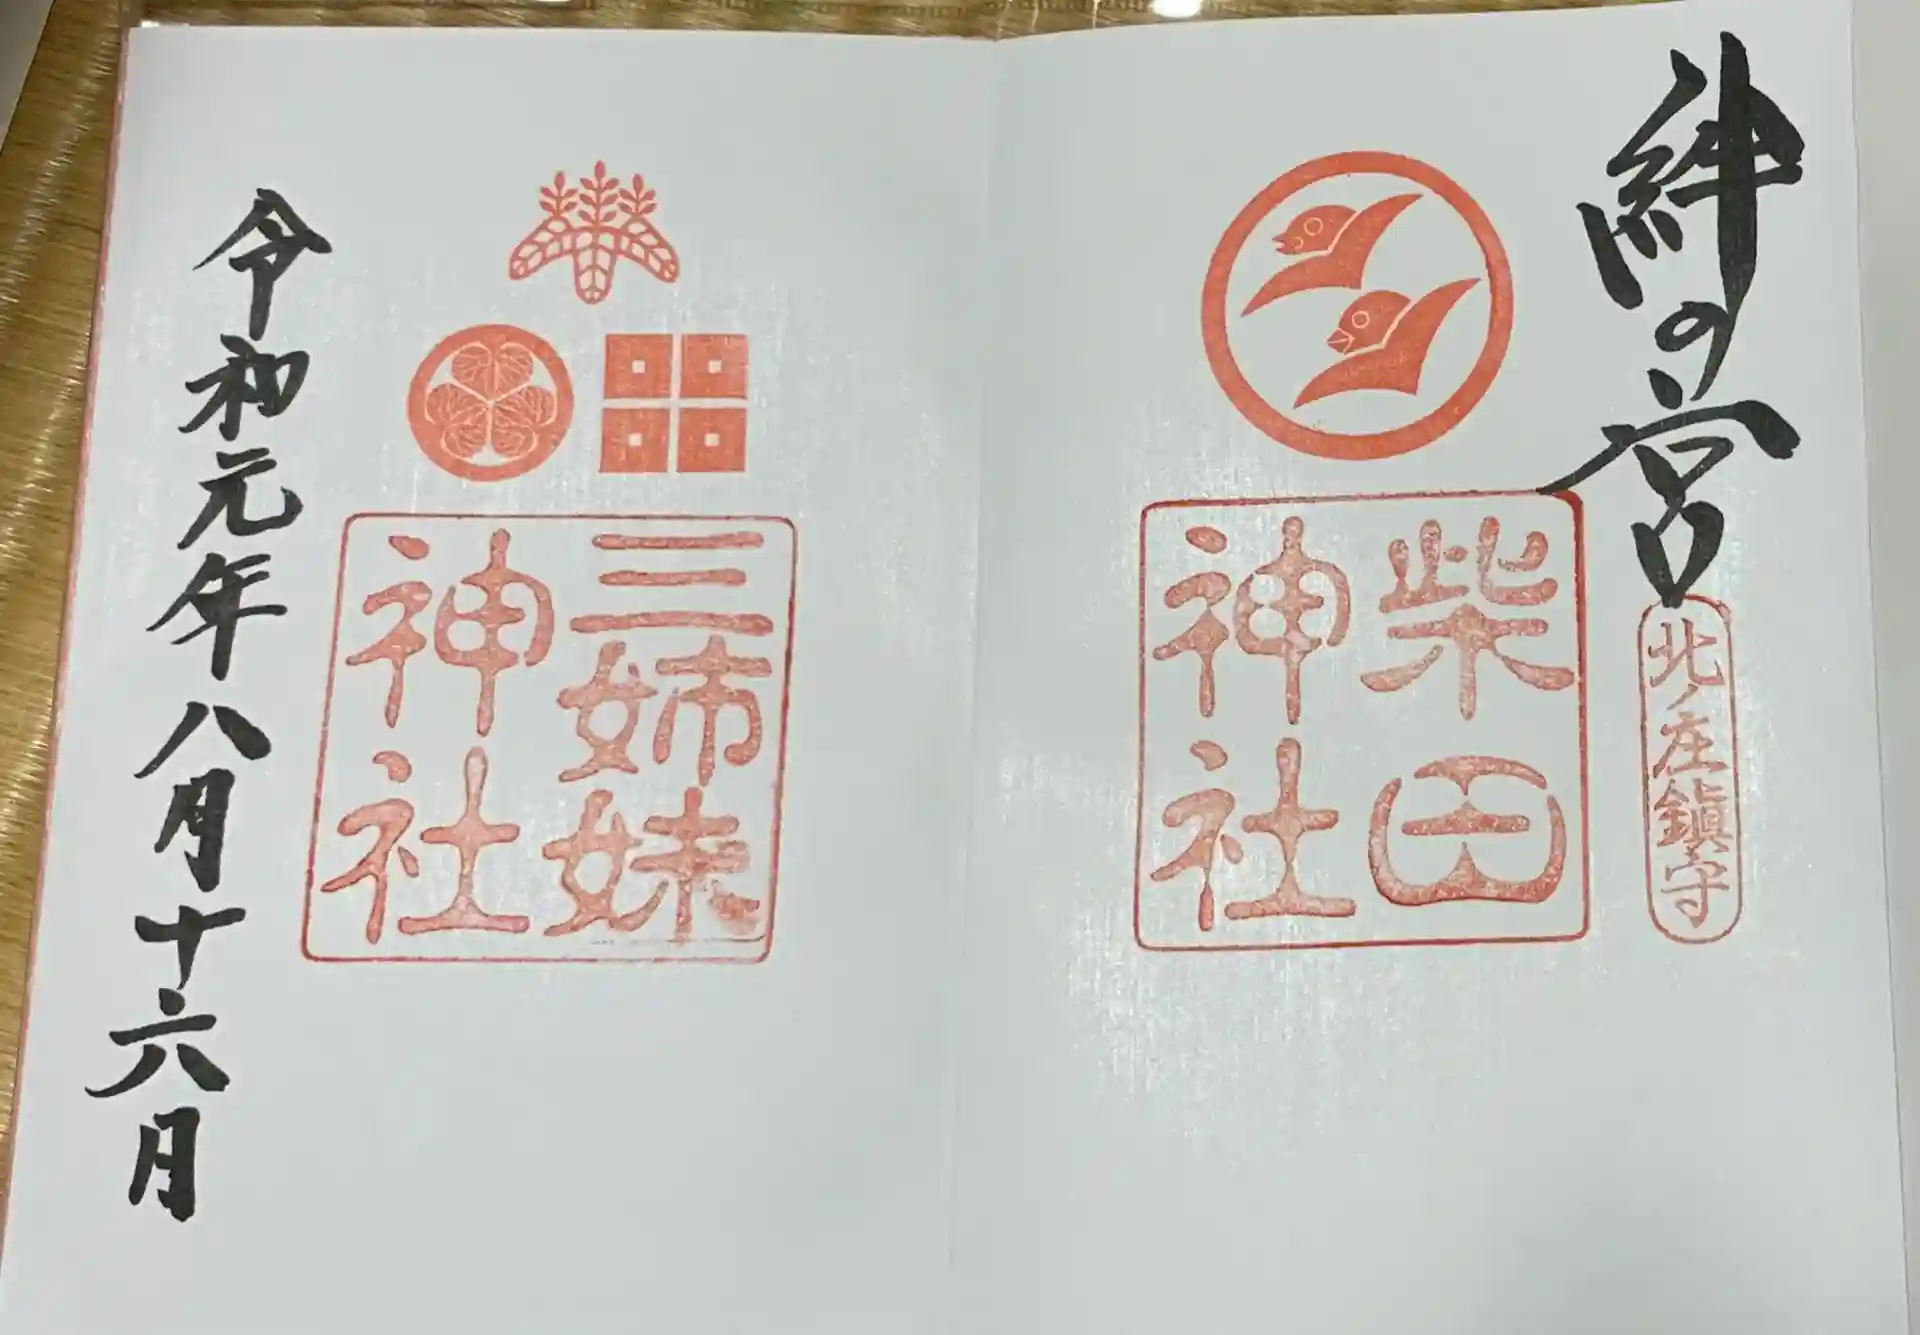 絆の宮
北ノ庄鎮守
柴田
神社
三姉妹
神社
令和元年八月十六日